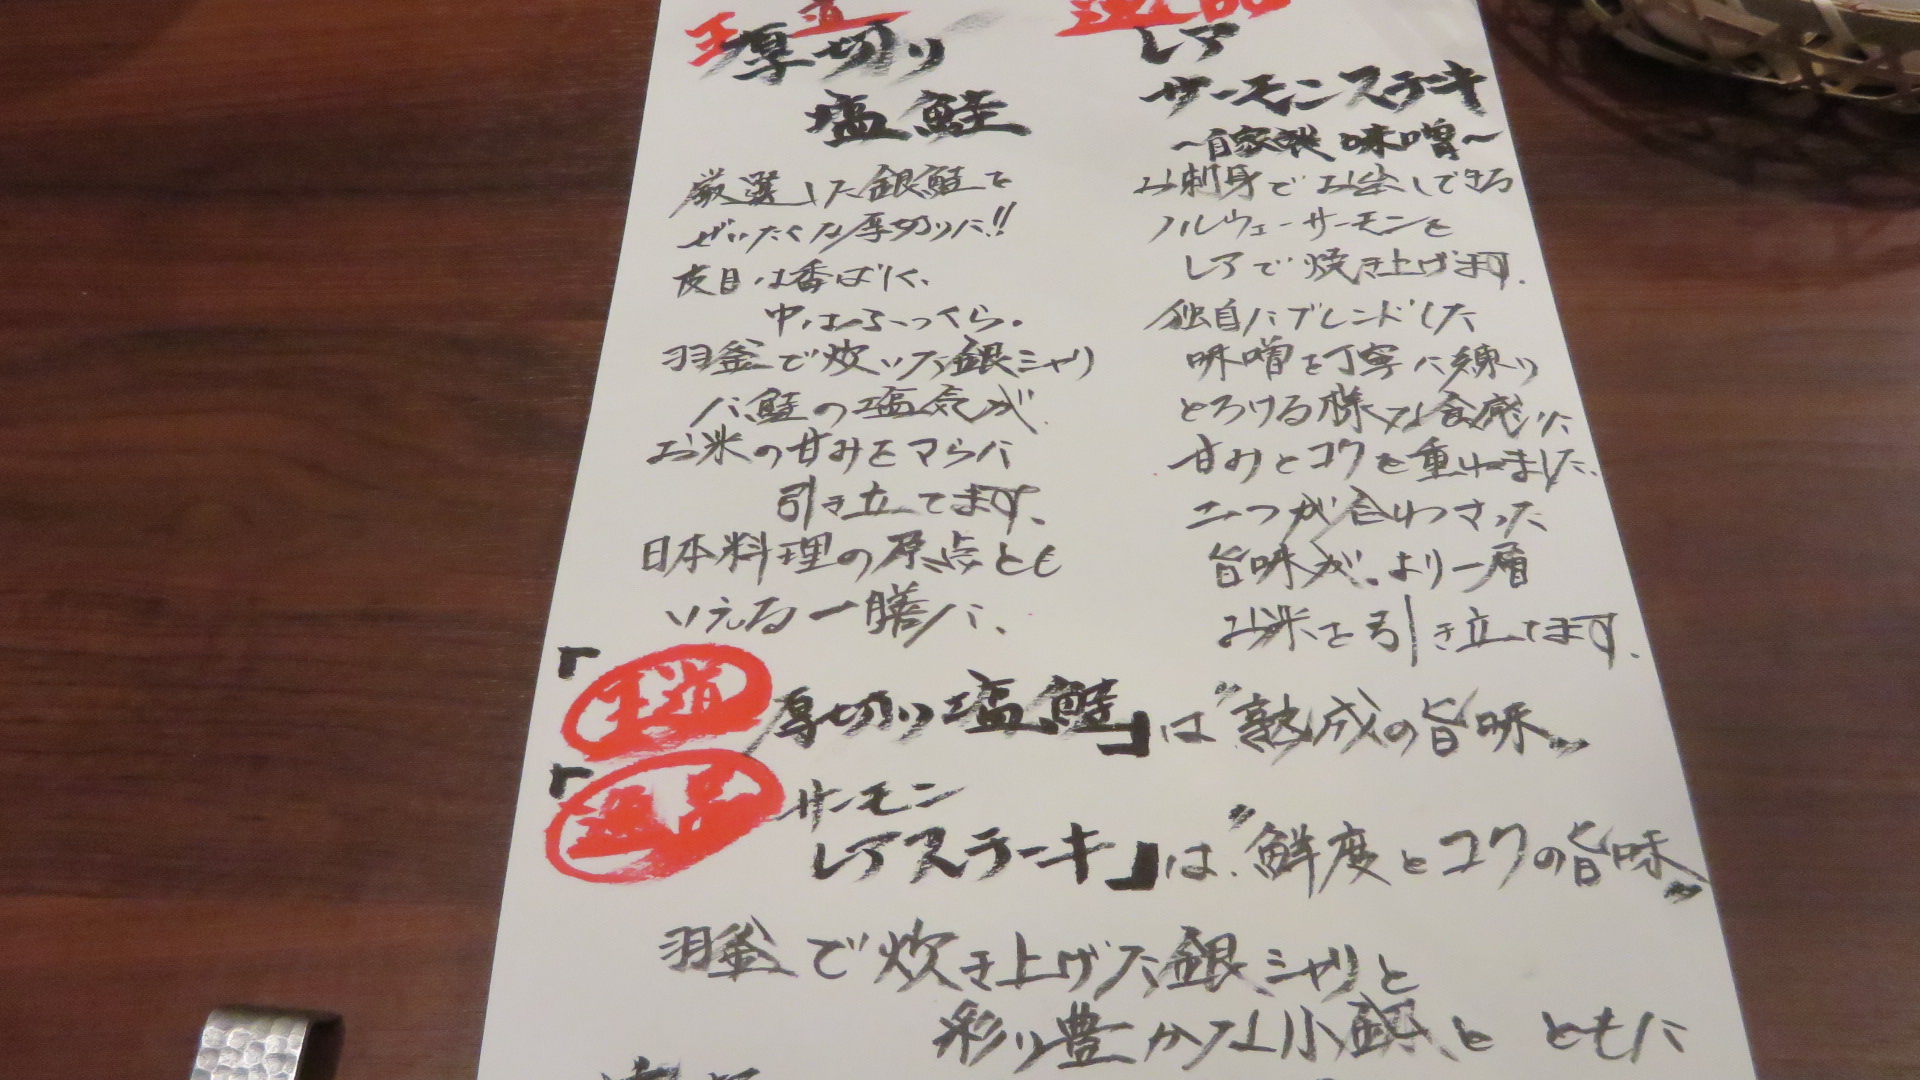 王道
厚切り
塩鮭
厳選した銀鮭を
ぜいたくな厚切りに!!
皮目は香ばしく、
中はふっくら。
羽釜で炊いた銀シャリ
に鮭の塩気が
お米の甘みをさらに
引き立てます。
日本料理の原点とも
いえる一膳に、
逸品
レア
サーモンステーキ
〜自家製 味噌〜
お刺身でお出しできる
ノルウェーサーモンを
レアで焼き上げます。
独自にブレンドした
味噌を丁寧に練り
とろける様な食感に
甘みとコクを重ねました。
二つが合わさった
旨味が、より一層
お米を引き立てます。
「王道 厚切り塩鮭」は"熟成の旨味"
「逸品 サーモン
レアステーキ」は"鮮度とコクの旨味"
羽釜で炊き上げた銀シャリと
彩り豊かな小鉢と ともに